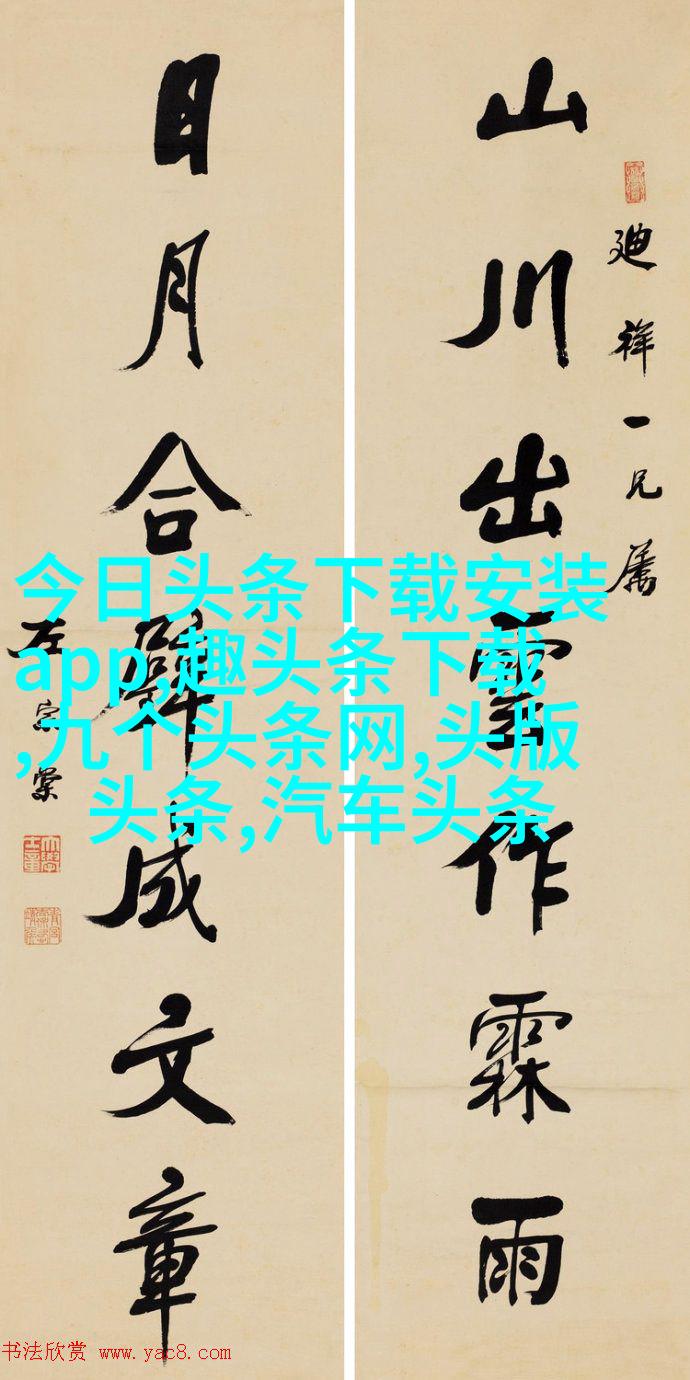 廸祥一兄属
山川出雲作霖雨
日月合璧成文章
左宗棠
今日头条下载安装
app,趣头条下载
,九个头条网,头版
头条,汽车头条
书法欣赏 www.yac8.com